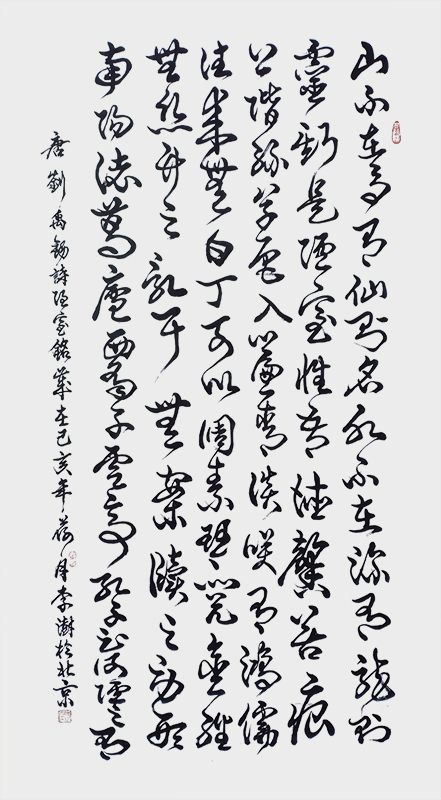 山不在高有仙則名水不在深有龍則
靈斯是陋室惟吾德馨苔痕
上階綠草色入簾青談咲有鴻儒
往來無白丁可以調素琴閱金經
無絲竹之亂耳無案牘之勞形
南陽諸葛廬西蜀子雲亭孔子云何陋之有
唐劉禹錫詩陋室銘歲在己亥年荷月李澍於北京